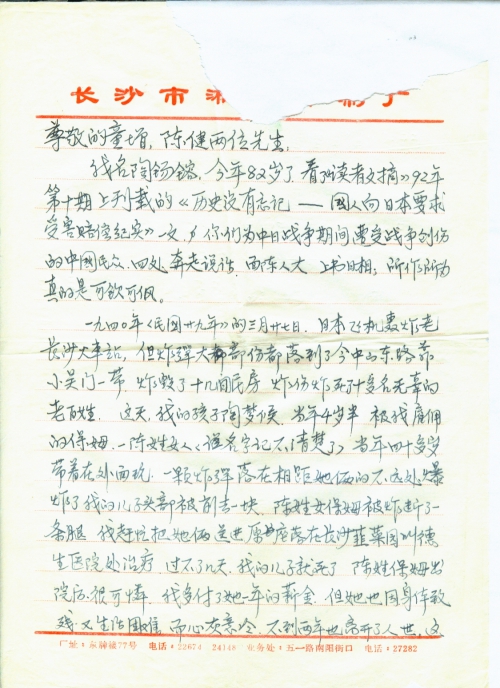 长沙市湘 制厂
尊敬的童增，陈健两位先生：
我名陶锡 ，今年82岁了，看了《读者文摘》92年
第十期上刊载的《历史没有忘记——国人向日本要求
受害赔偿纪实》一文，你们为中日战争期间遭受战争创伤
的中國民众，四处奔走说法，面陈人大，上书日相，所作所为
真的是可钦可佩。
一九四〇年（民国廿九年）的三月廿七日，日本飞机轰炸老
长沙火车站，但炸弹大都部份都落到了今中山东路靠
小吴门一带，炸毁了十几间民房，炸伤炸死了廿多名无辜的
老百姓，这天，我的孩子陶梦侯，当年4岁半，被我雇佣
的保姆，一陈姓女人（误名字记不清楚了）当年四十多岁
带着在外面玩，一颗炸弹落在相距她俩的不远处，爆
炸了，我的儿子头部被削去一块，陈姓女保姆被炸断了一
条腿，我赶忙把她俩送进原座落在长沙韭菜园 德
生医院处治疗，过不了几天，我的儿子就死了，陈姓保姆出
院后很可怜，我多付了她一年的薪金，但她也因身体致
残，又生活困难，而心灰意冷，不到两年也离开了人世，这
厂址：东牌楼77号 电话：22674 24148 业务处：五一路南阳街口 电话：27282